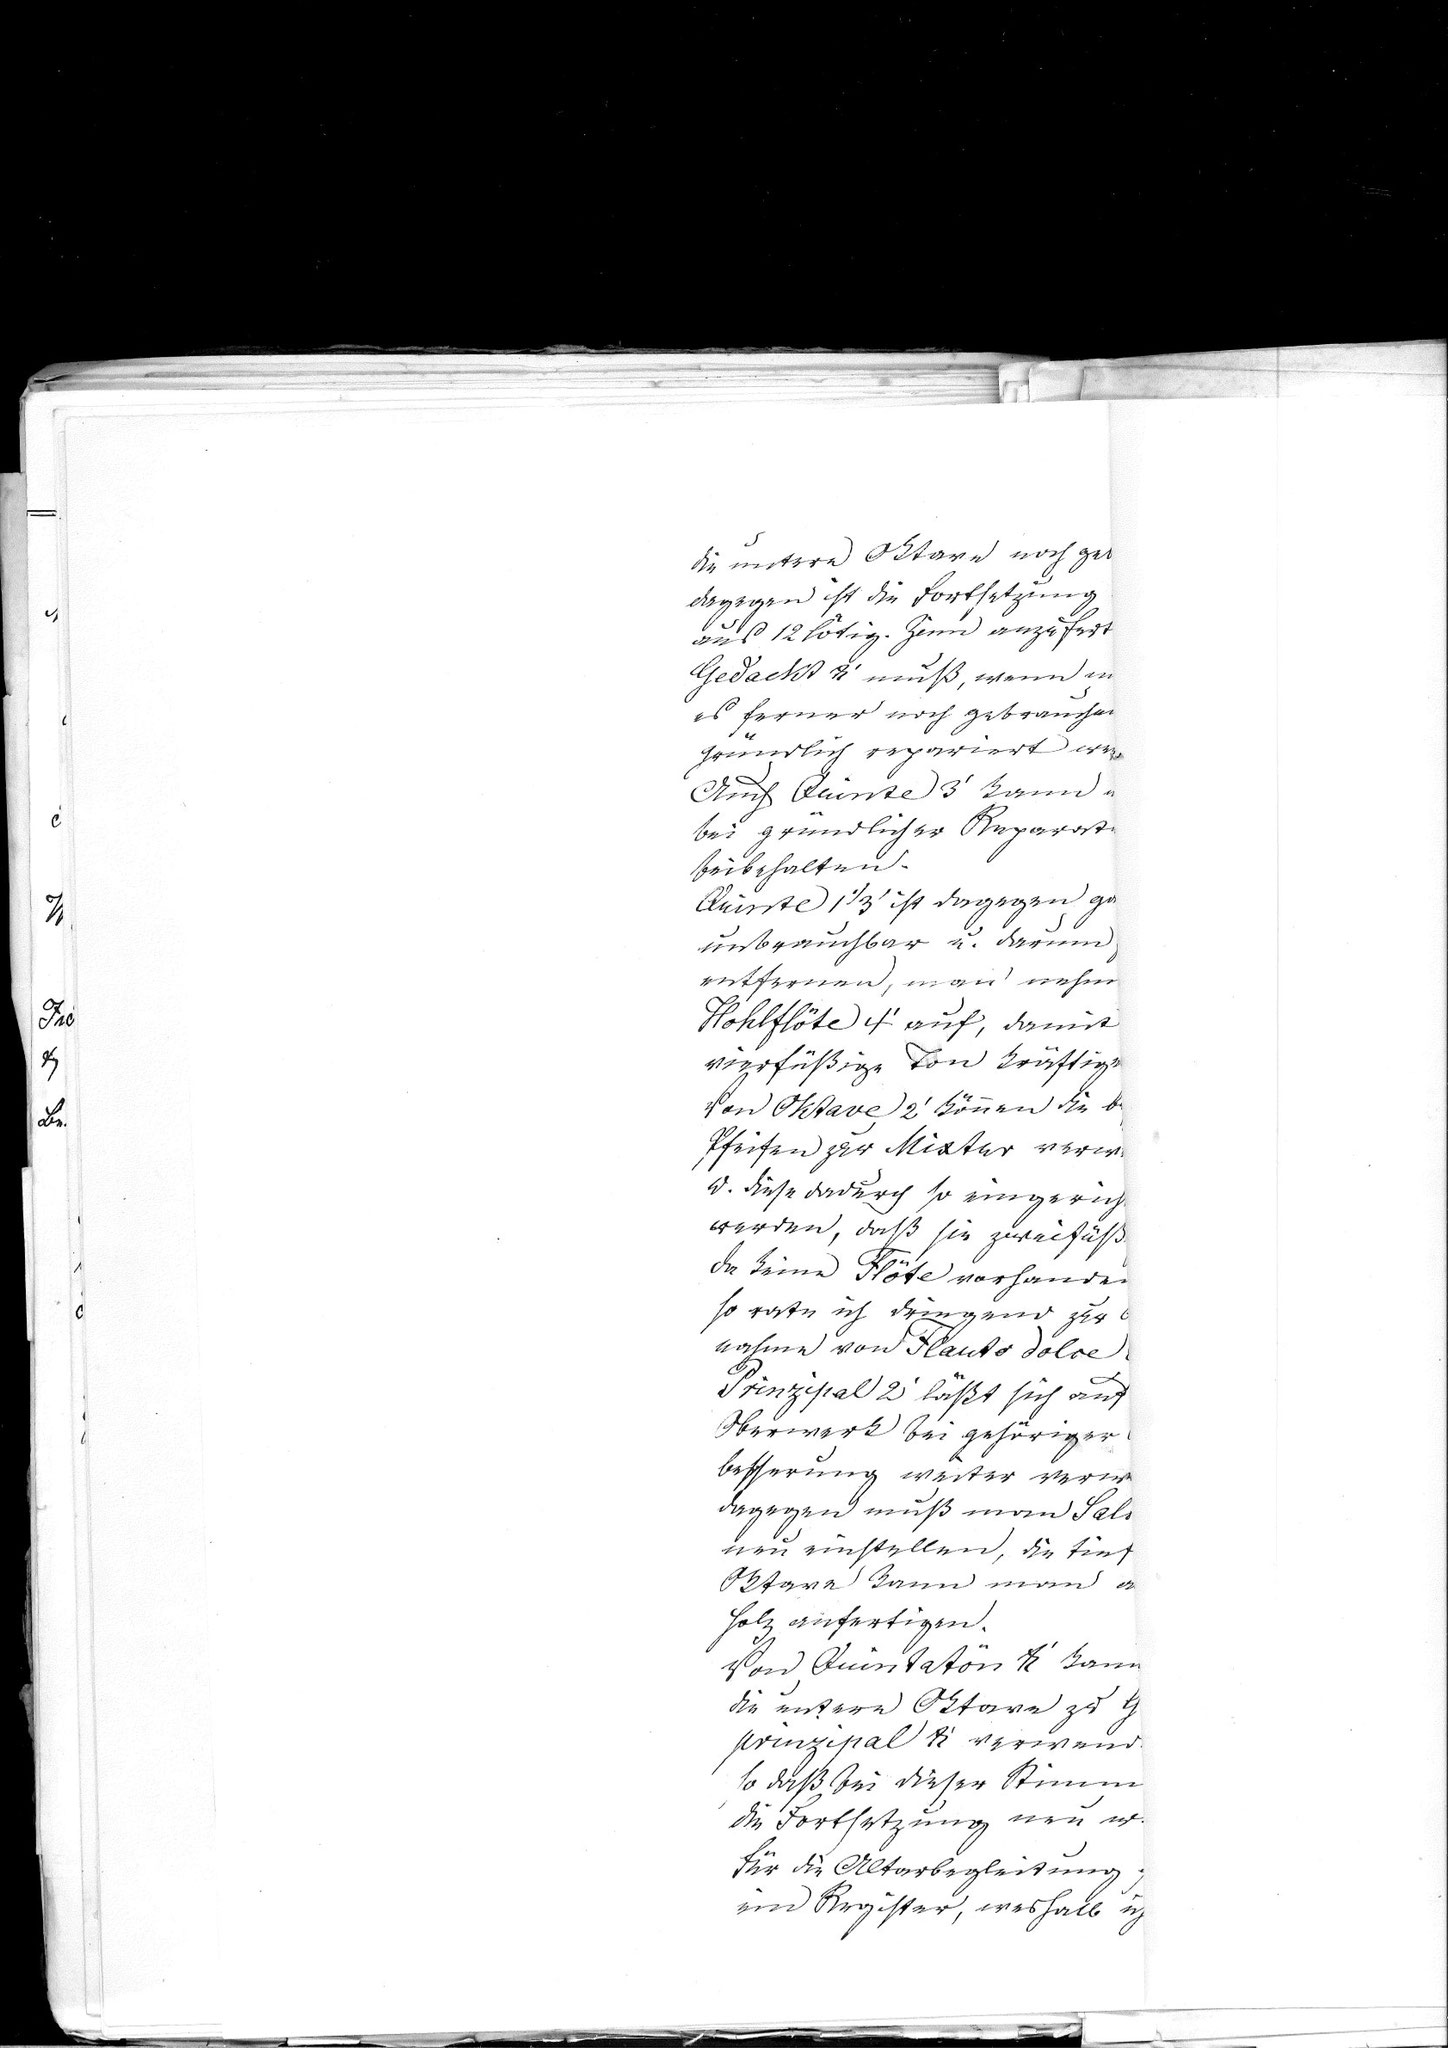 die untere Oktave noch ge
dagegen ist die Fortsetzung
aus 12 lötig. Zinn anzufert
Gedackt 8' muß, wenn m
es ferner noch gebrauche
gründlich repariert wer
Auch Quinte 3' kann
bei gründlicher Reparat
beibehalten.
Quinte 1 1/3' ist dagegen ga
unbrauchbar u. darum
entfernen, man nehm
Hohlflöte 4' auf, damit
vierfüßige Ton kräftige
Von Oktave 2' können die b
Pfeifen zur Mixtur verw
u. diese dadurch so eingerich
werden, daß sie zweifüß
da keine Flöte vorhanden
so rate ich dringend zur
nahme von Flauto dolce
Prinzipal 2' läßt sich auf
Oberwerk bei gehöriger
besserung weiter verw
dagegen muß man Sali
neu einstellen, die tief
Oktave kann man a
Holz anfertigen.
Von Quintatön 8' kann
die untere Oktave zu G
prinzipal 8' verwend
so daß bei dieser Stimm
die Fortsetzung neu w
Für die Altarbegleitung
ein Register, weshalb ich